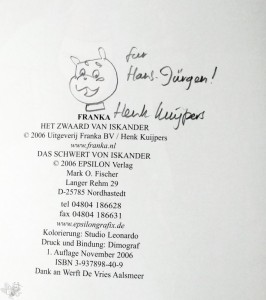 für
Hans-Jürgen!
Henk Kuijpers
FRANKA
HET ZWAARD VAN ISKANDER
© 2006 Uitgeverij Franka BV / Henk Kuijpers
www.franka.nl
DAS SCHWERT VON ISKANDER
© 2006 EPSILON Verlag
Mark O. Fischer
Langer Rehm 29
D-25785 Nordhastedt
tel 04804 186628
fax 04804 186631
www.epsilongrafix.de
Kolorierung: Studio Leonardo
Druck und Bindung: Dimograf
1. Auflage November 2006
ISBN 3-937898-40-9
Dank an Werft De Vries Aalsmeer